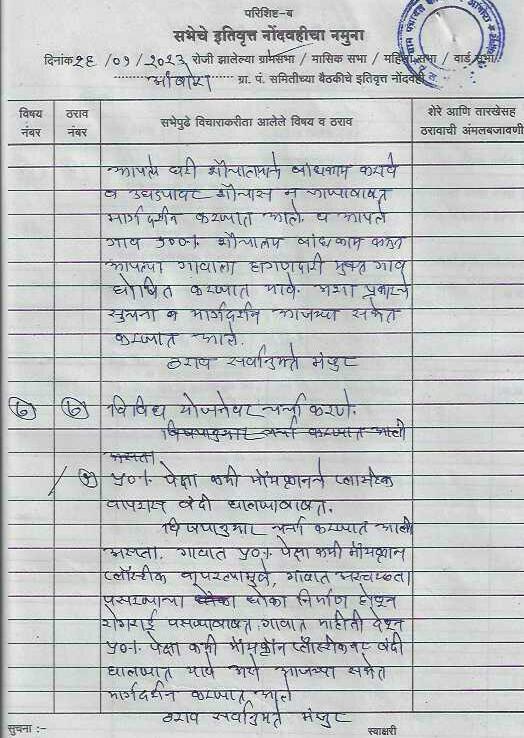 परिशिष्ट-ब
सभेचे इतिवृत्त नोंदवहीचा नमुना
दिनांक २६/०१/२०१३ रोजी झालेल्या ग्रामसभा / मासिक सभा / महिला सभा / वार्ड सभा
ग्रा. पं. समितीच्या बैठकीचे इतिवृत्त नोंदवही
विषय नंबर
ठराव नंबर
सभेपुढे विचाराकरीता आलेले विषय व ठराव
शेरे आणि तारखेसह ठरावाची अंमलबजावणी
आपले घरी शौचालयाचे बांधकाम करावे
व उघडयावर शौचास न जाण्याबाबत
मार्गदर्शन करण्यात आले. व आपले
गाव १००% शौचालय बांधकाम करुन
आपल्या गावाला हागणदारी मुक्त गाव
घोषित करण्यात यावे. अशा प्रकारचे
सुचना व मार्गदर्शन आजच्या सभेत
करण्यात आले.
ठराव सर्वानुमते मंजुर
७ ७ विविध योजनेवर चर्चा करणे.
विषयानुसार चर्चा करण्यात आली
असता
१ ५०% पेक्षा कमी मॉयक्रानचे प्लास्टिक
वापरास बंदी घालण्याबाबत.
विषयानुसार चर्चा करण्यात आली
असता. गावात ५०% पेक्षा कमी मॉयक्रान
प्लॉस्टीक वापरल्यामुळे, गावात अस्वच्छता
पसरण्याचा धोका निर्माण होवुन
रोगराई पसण्याबाबत गावात माहीती देवुन
५०% पेक्षा कमी मॉयक्रॉन प्लॉस्टिकवर बंदी
घालण्यात यावे असे आजच्या सभेत
मार्गदर्शन करण्यात आले
ठराव सर्वानुमते मंजुर
सुचना :-
स्वाक्षरी